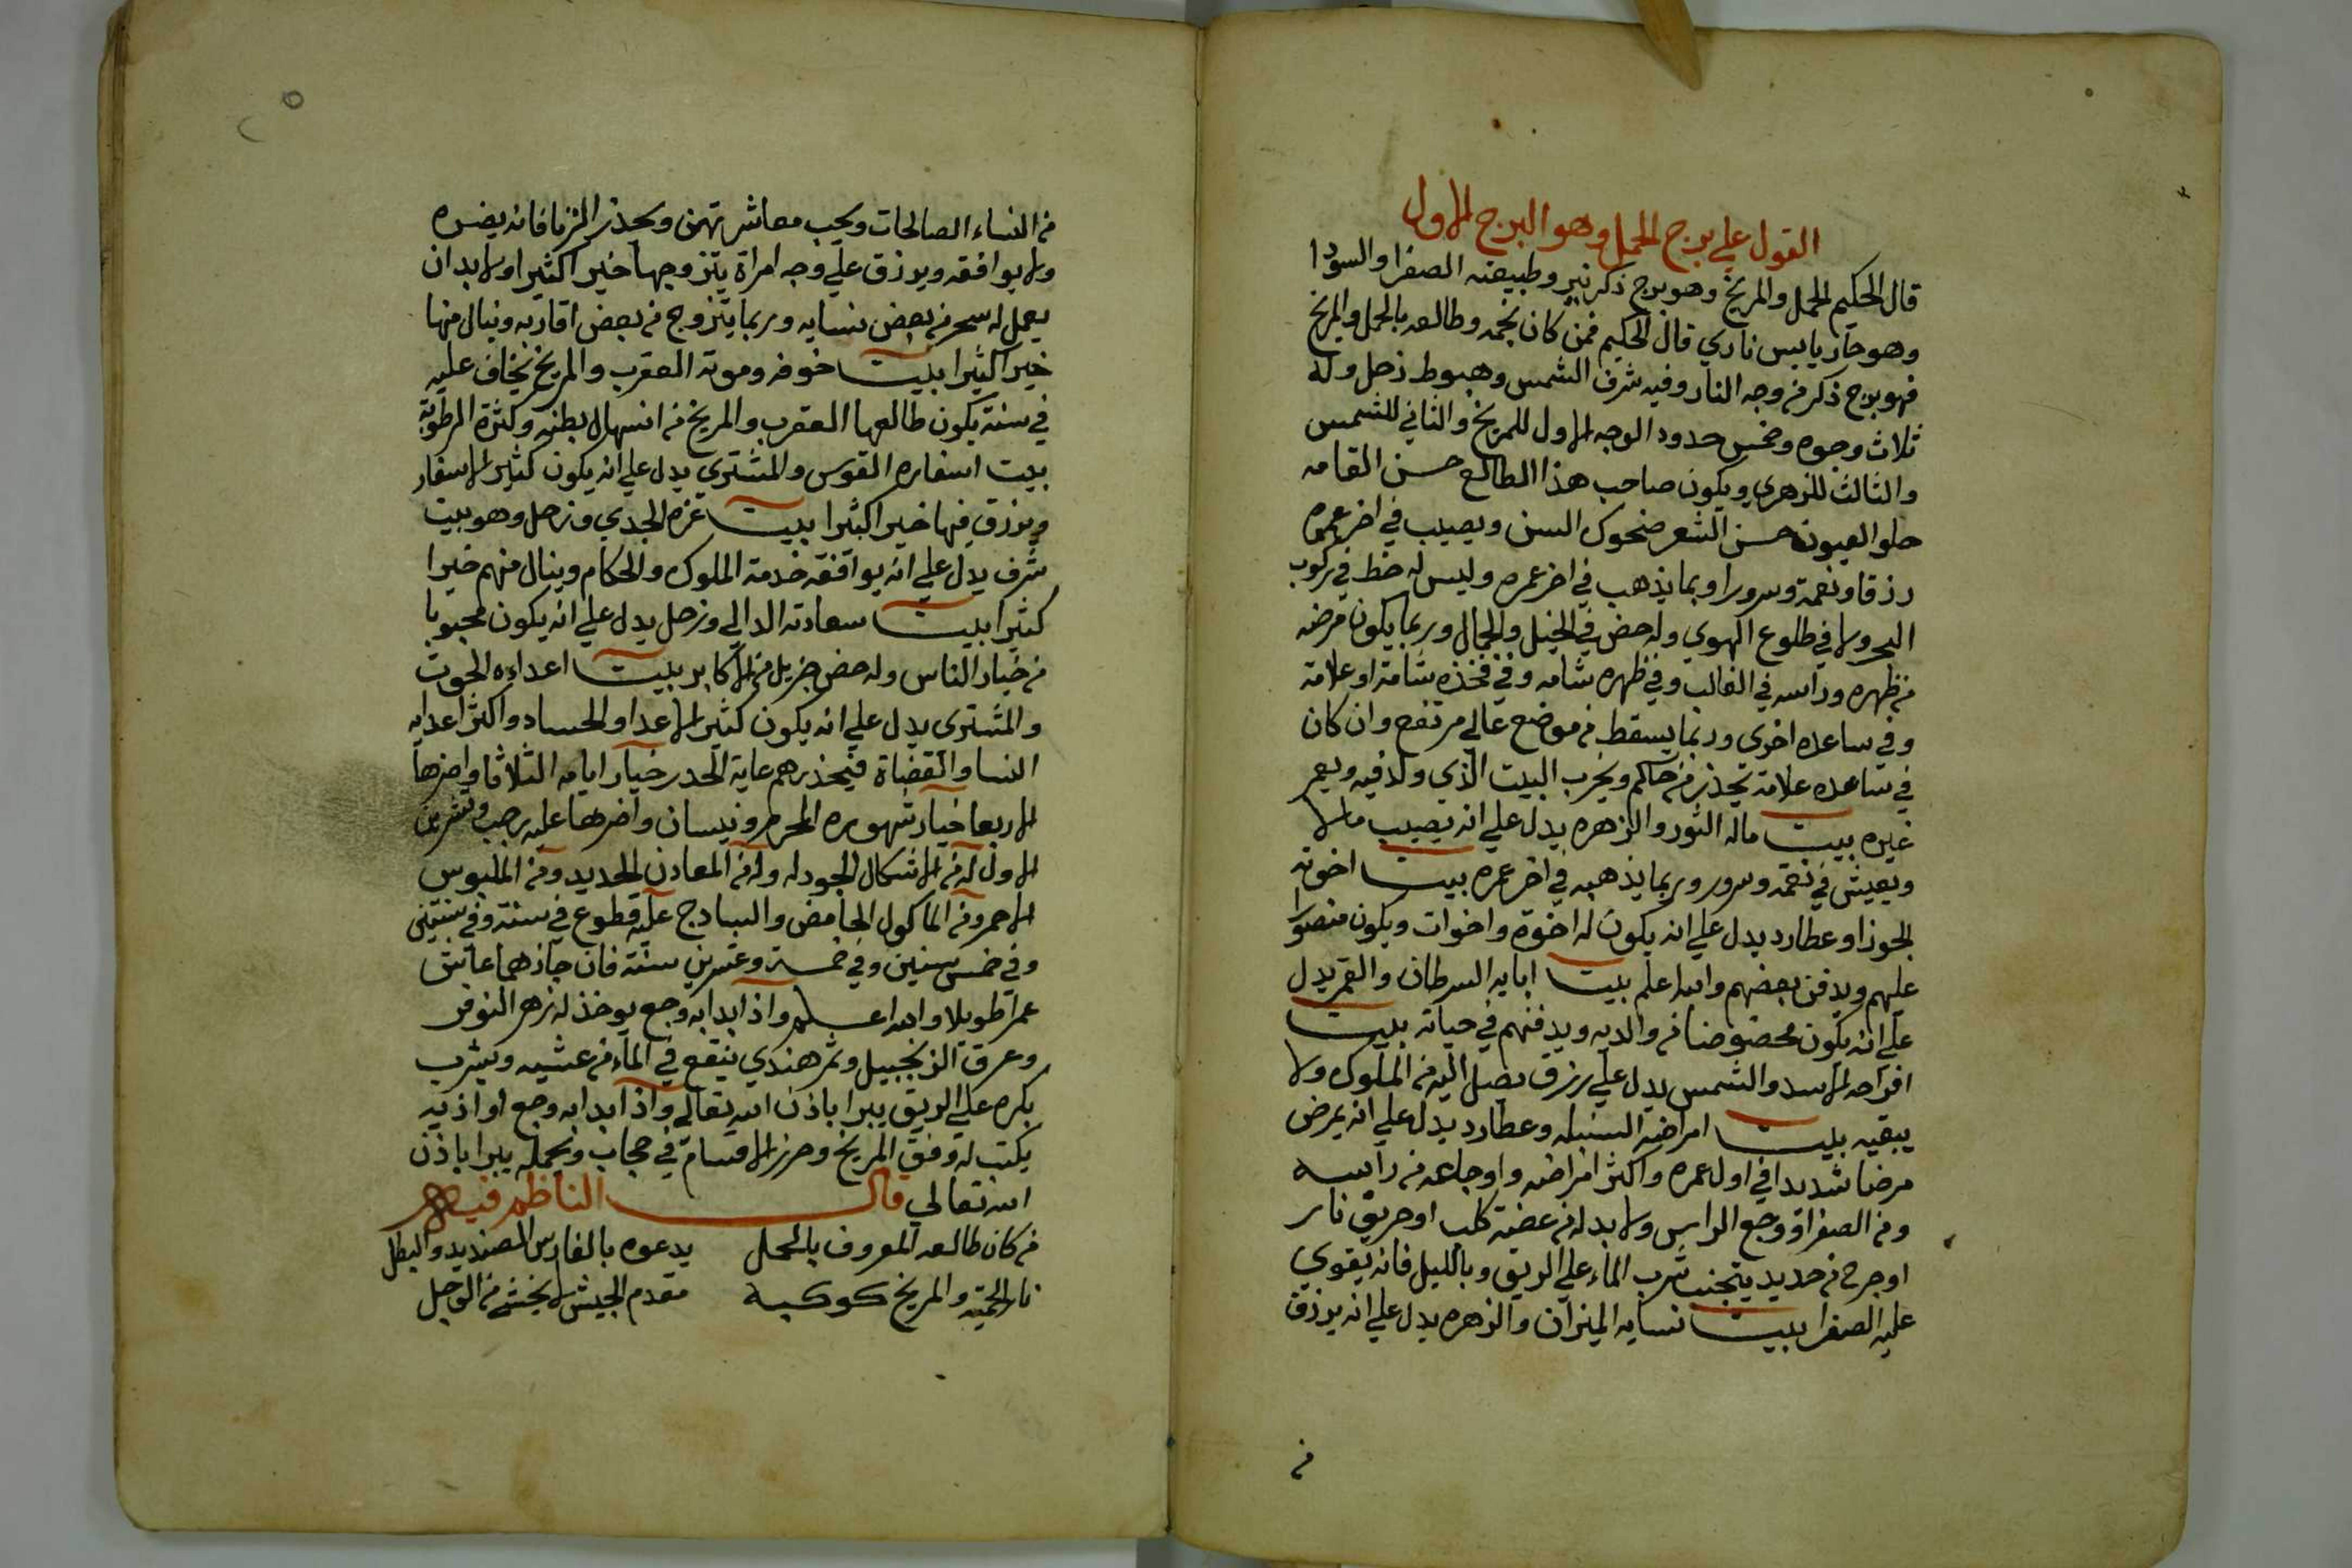 القول علي برج الحمل وهو البرج الاول
قال الحكيم الحمل والمريخ وهو برج ذكر نير وطبيعته الصفرا والسودا
وهو حار يابس ناري قال الحكيم فمن كان نجمه وطالعه بالحمل والمريخ
فهو برج ذكر من وجه النار وفيه شرف الشمس وهبوط زحل وله
ثلاث وجوه وخمس حدود الوجه الاول للمريخ والثاني للشمس
والثالث للزهري ويكون صاحب هذا الطالع حسن القامه
حلو العيون حسن الشعر ضحوك السن ويصيب في اخر عمره
رزقا ونعمة وسرورا وبما يذهب في اخر عمره وليس له حظ في ركوب
البحر ولا في طلوع الهوي وله حض في الخيل والجمال وربما يكون مرضه
من ظهره وراسه في الغالب وفي ظهره شامه وفي فخذه شامة او علامة
وفي ساعده اخري وربما يسقط من موضع عالي مرتفع وان كان
في ساعده علامة يحذر من حاكم ويخرب البيت الذي ولد فيه ويعمر
غيره بيت ماله الثور والزهره يدل علي انه يصيب مالا
ويعيش في نعمه وسرور وربما يذهبه في اخر عمره بيت اخوته
الجوزا وعطارد يدل علي انه يكون له اخوة واخوات ويكون منصورا
عليهم ويدفن بعضهم والله اعلم بيت ابايه السرطان والقمر يدل
علي انه يكون محضوضا من والديه ويدفنهم في حياته بيت
افراحه الاسد والشمس يدل علي رزق يصل اليه من الملوك ولا
يبقيه بيت امراضه السنبله وعطارد يدل علي انه يمرض
مرضا شديدا في اول عمره واكثر امراضه واوجاعه من راسه
ومن الصفرا ووجع الراس ولا بد له من عضة كلب او حريق نار
او جرح من حديد يتجنب شرب الماء علي الريق وبالليل فانه يقوي
عليه الصفرا بيت نسايه الميزان والزهره يدل علي انه يرزق
من
من النساء الصالحات ويحب معاشرتهن ويحذر الزنا فانه يضره
ولا يوافقه ويرزق علي وجه امراة يتزوجها خيرا كثيرا ولا بد ان
يعمل له سحر من بعض نسايه وربما يتزوج من بعض اقاربه وينال منها
خيرا كثيرا بيت خوفه وموته العقرب والمريخ يخاف عليه
في سنة يكون طالعها العقرب والمريخ من انسهال بطنه وكثرة الرطوبة
بيت اسفاره القوس والمشتري يدل علي انه يكون كثير الاسفار
ويرزق فيها خيرا كثيرا بيت عزه الجدي وزحل وهو بيت
شرف يدل علي انه يوافقه خدمة الملوك والحكام وينال منهم خيرا
كثيرا بيت سعادته الدالي وزحل يدل علي انه يكون محبوبا
من خيار الناس وله حض جزيل من الاكابر بيت اعداءه الحوت
والمشتري يدل علي انه يكون كثير الاعدا والحساد واكثر اعدايه
النسا والقضاة فيحذرهم غاية الحدر خيار ايامه الثلاثا واضرها
الاربعا خيار شهوره المحرم ونيسان واضرها عليه رجب وتشرين
الاول له من الاشكال الجودله وله من المعادن الحديد ومن الملبوس
الاحمر ومن الماكول الحامض والسادج عليه قطوع في سنة وفي سنتين
وفي خمس سنين وفي خمسة وعشرين سنة فان جازهما عاش
عمرا طويلا والله اعلم واذا بدا به وجع يوخذ له زهر النوفر
وعرق الزنجبيل وتمر هندي ينقع في الماء من عشيه ويشرب
بكره علي الريق يبرا باذن الله تعالي واذا بدا به وجع او اذيه
يكتب له وفق المريخ وحرز الاقسام في حجاب ويحمله يبرا باذن
الله تعالي قال الناظم فيه
من كان طالعه المعروف بالحمل يدعوه بالفارس الصنديد والبطل
نار الحمية والمريخ كوكبه مقدم الجيش لا يخشي من الوجل